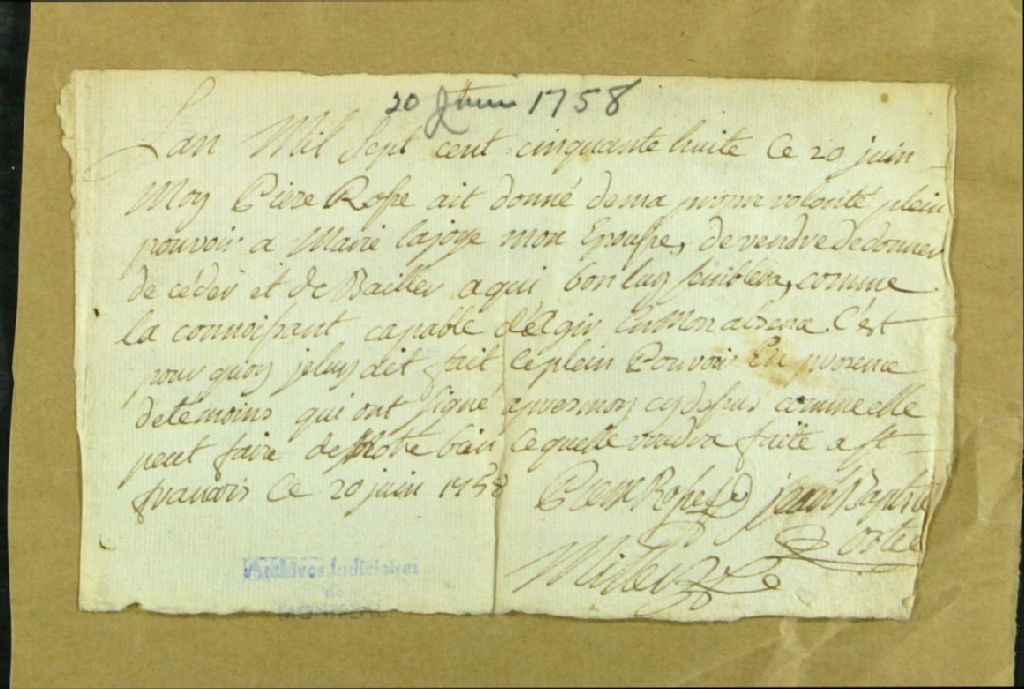 20 Juin 1758
Lan Mil Sept cent cinquante huite Ce 20 juin
Moy Piere Rosse ait donné dema propre volonté plein
pouvoir a Marie lajoye mon Epousse, de vendre de donner
de céder et de Bailler a qui bon luy semblera, comme
la connoissant capable d'élagir En mon absence. C'est
pour quoy je luy dit fait ce plein Pouvoir En presence
de temoins qui ont signé apres moy cy dessus comme elle
peut faire de Notre bien ce quelle voudra faite a st
francois Ce 20 juin 1758
Piere Rosse jean Baptiste
Millet
Archives Judiciaires
de
MONTREAL